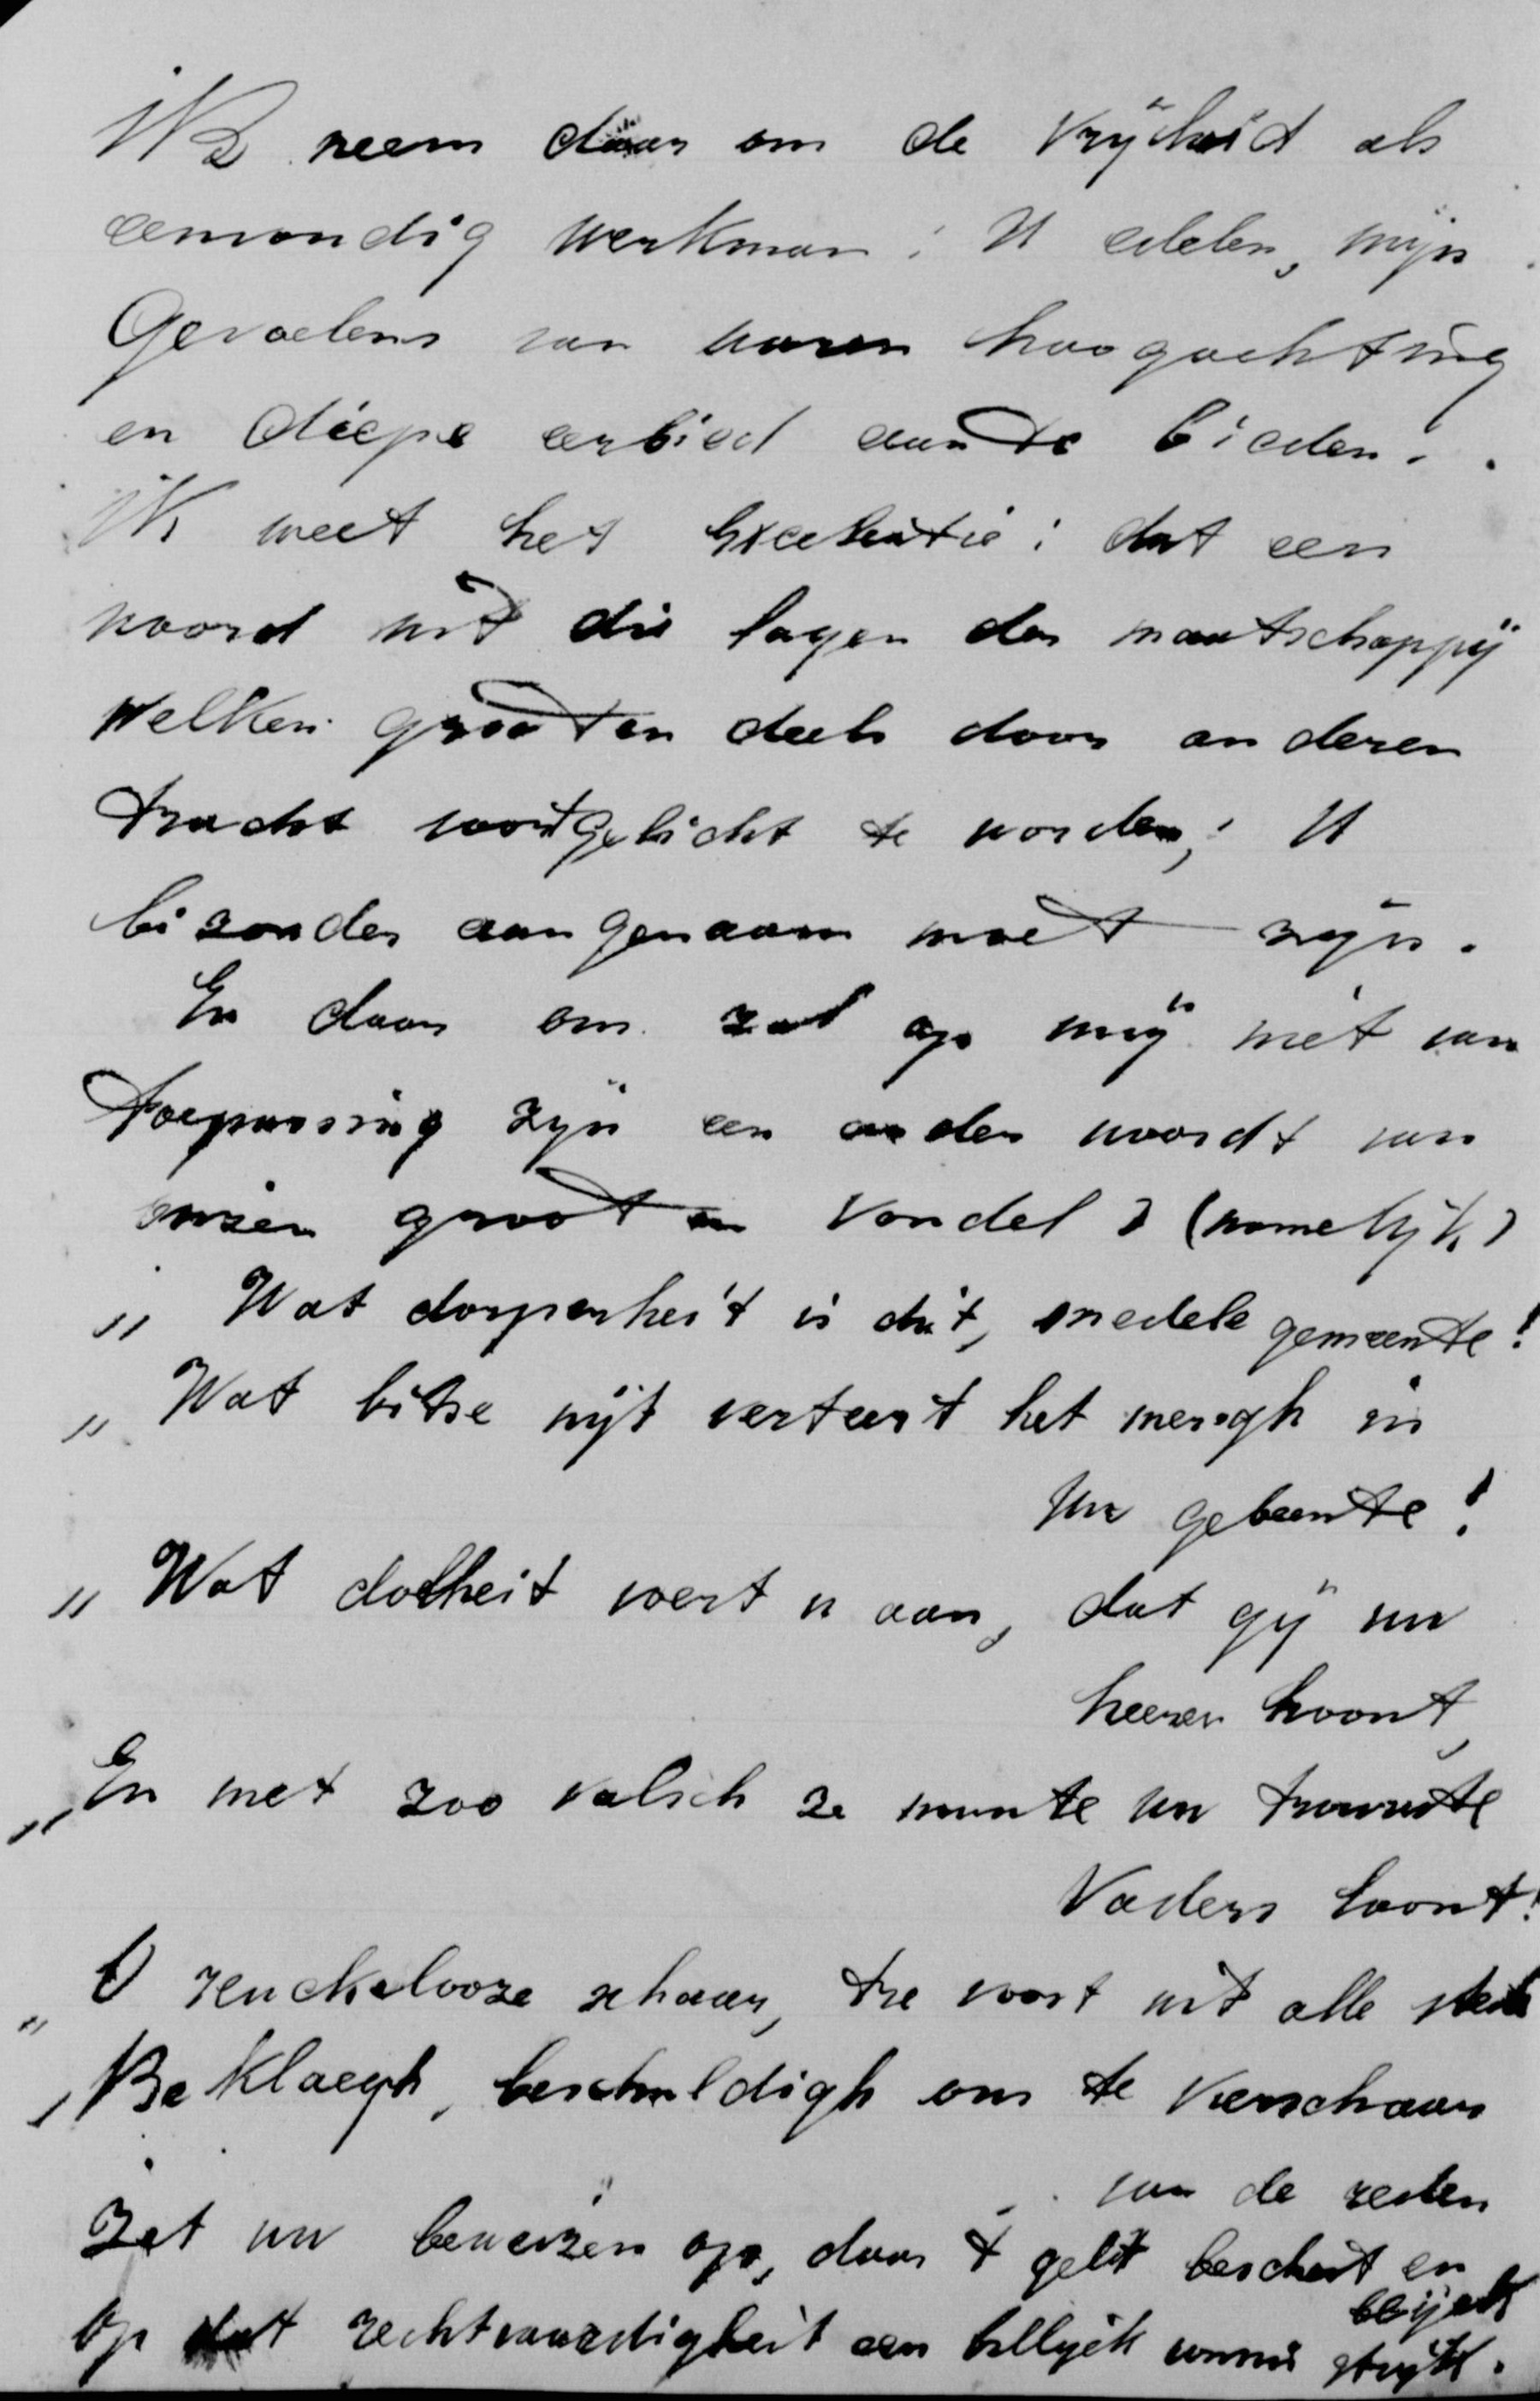 ik neem daar om de Vrijheid als
eenvoudig werkman; U edelen, mijn
Gevoelens van waren hoogachting
en diepe eerbied aan te bieden.
ik weet het Excelentie; dat een
woord uit die lagen der maatschappij
welken grooten deels door anderen
tracht voortgelicht te worden; U
bizonder aangenaam moet zijn.
En daar om zal op mij niet van
toepassing zijn een ander woordt van
onzen grooten Vondel (namelijk)
„ Wat dorperheit is dit, onedele gemeente!
„ Wat bitse nijt verteert het mergh in
uw gebeente!
„ Wat dolheit voert u aan, dat gij uw
heeren hoont,
„ En met zoo valsch ze munte uw trouwste
Vaders loont!
„ O reuckelooze schaar, tre voort uit alle steden
„ Be Klaegh, beschuldigh ons te Vierschaar
van de reden
Zet uw beweizen op, daar t gelt bescheit en
blijck
Op dat rechtvaardigheit een billijck vonnis strijck.